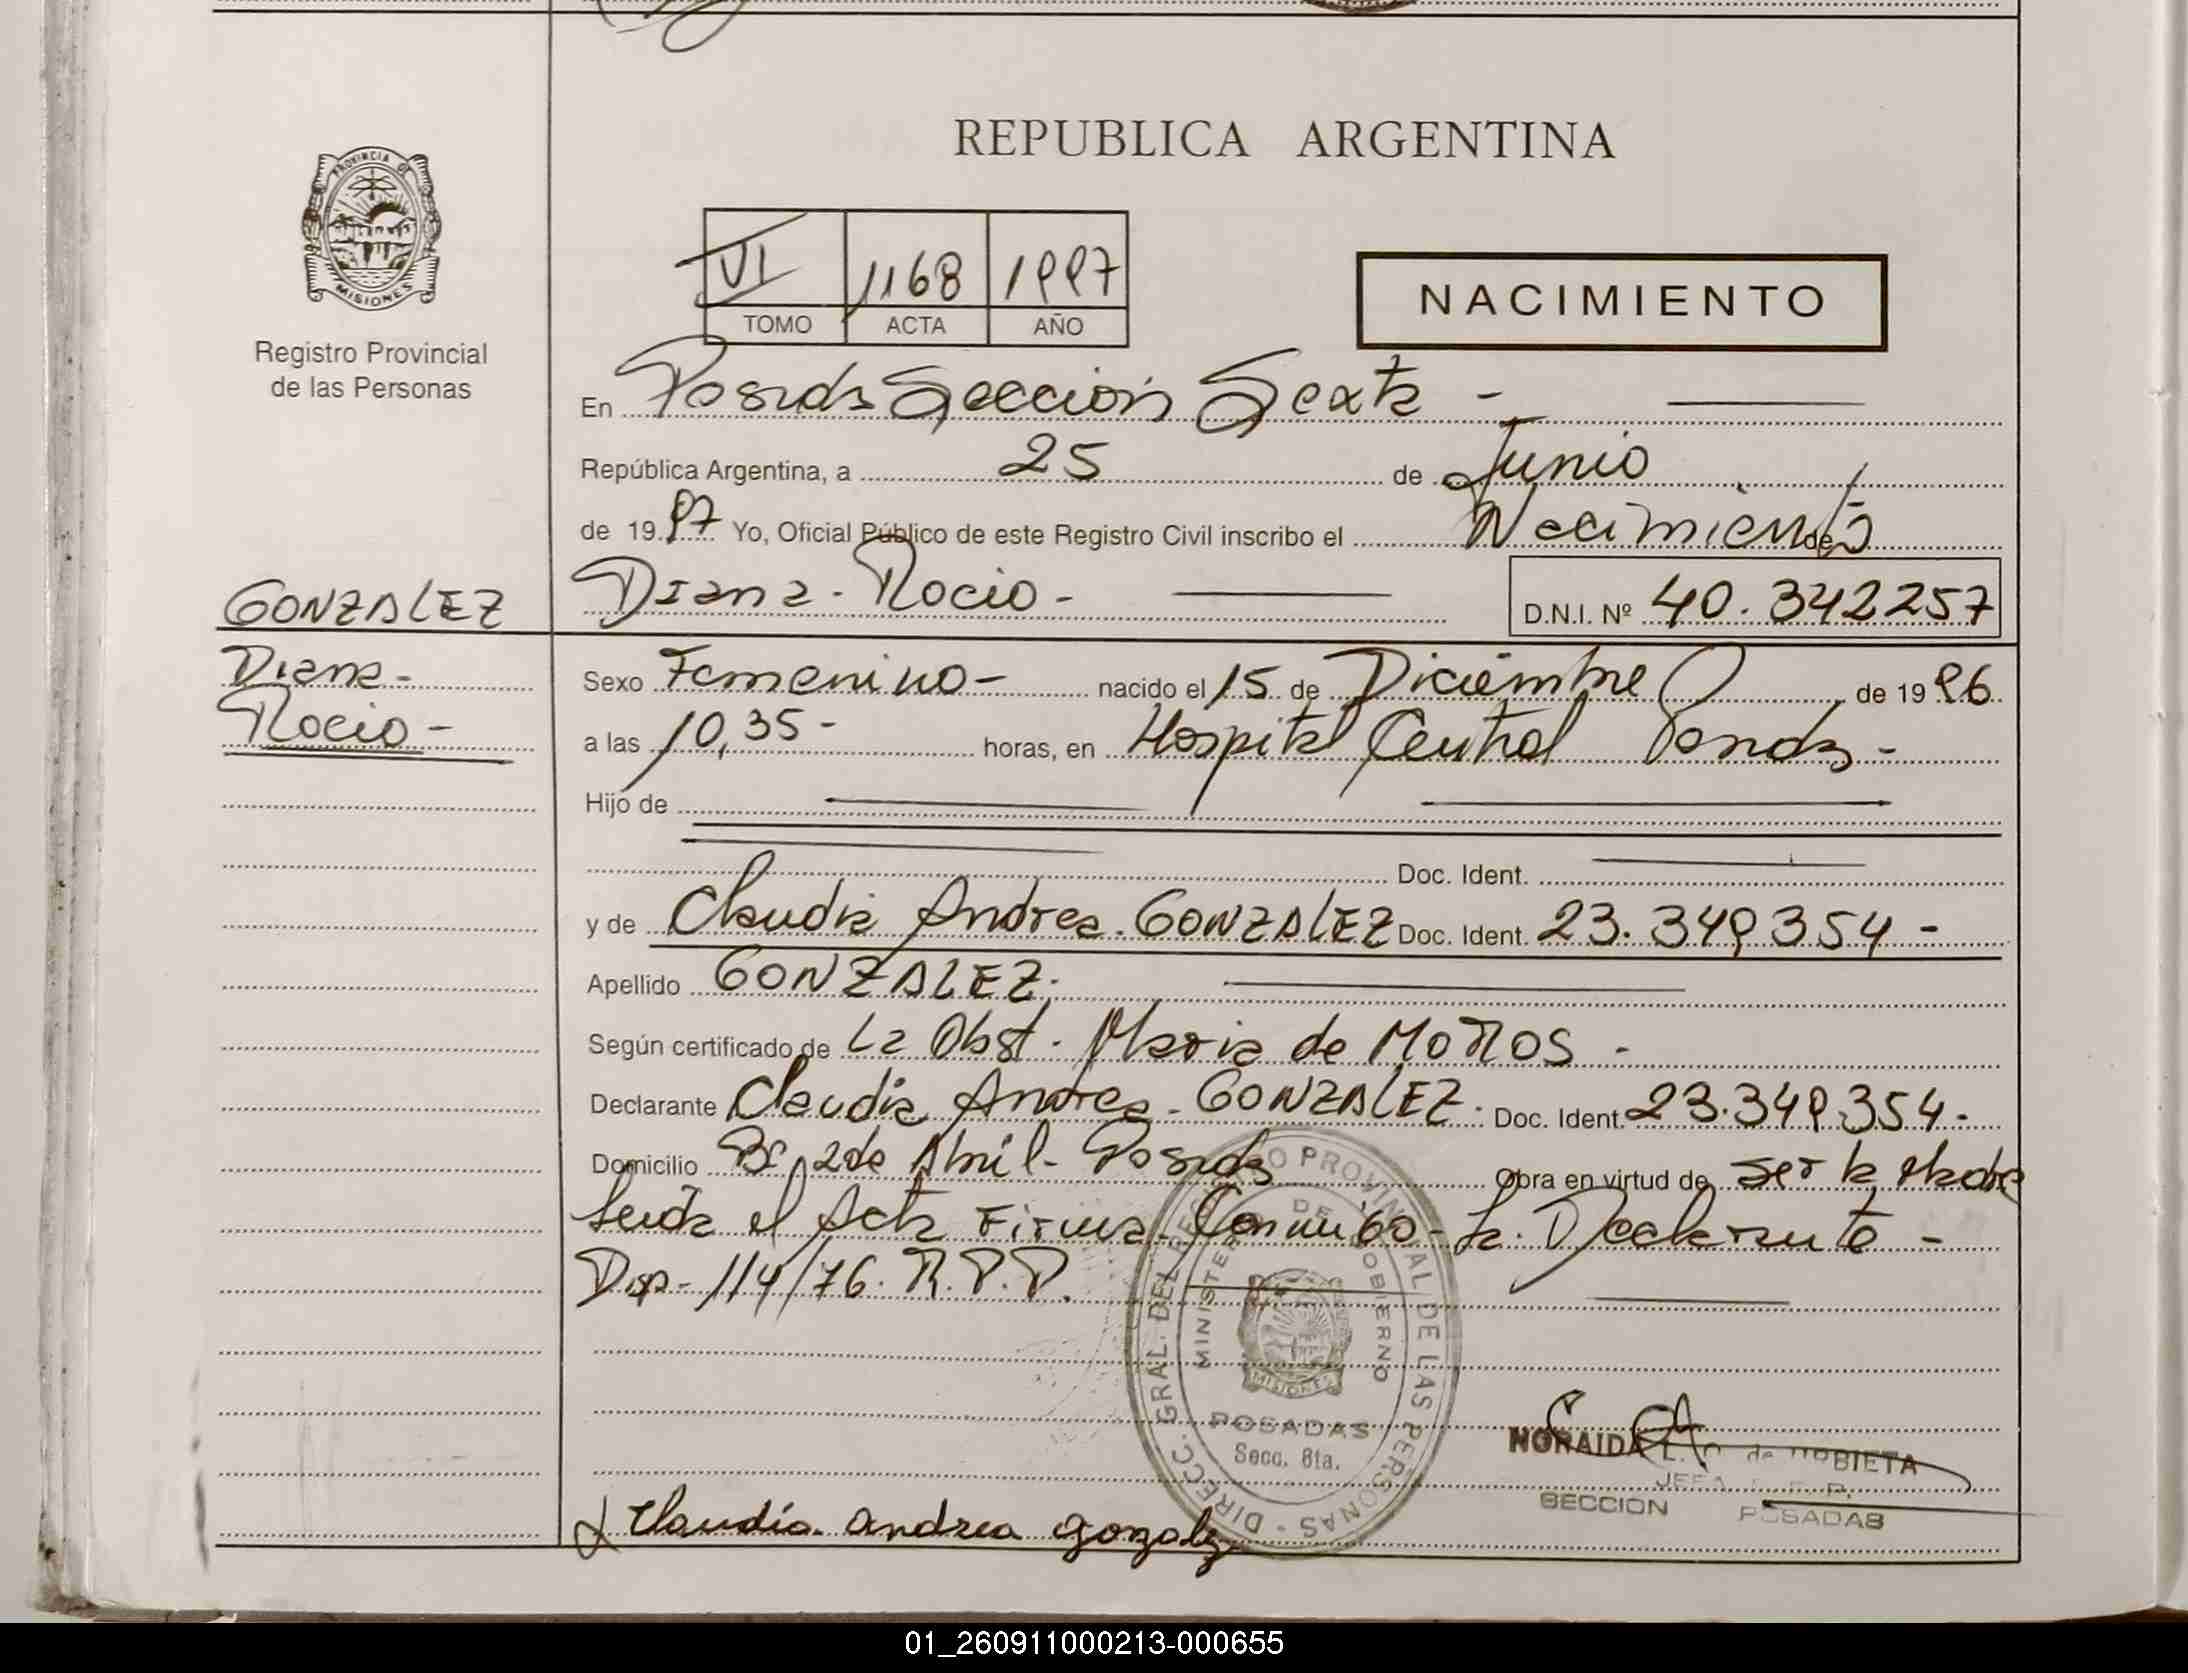 REPUBLICA ARGENTINA
PROVINCIA DE
MISIONES
Registro Provincial
de las Personas
VI 1168 1997
TOMO ACTA AÑO
NACIMIENTO
En Posadas Sección Sexta -
República Argentina, a 25 de Junio
de 1997 Yo, Oficial Público de este Registro Civil inscribo el Nacimiento de
GONZALEZ
Diana - Rocio -
Diana - Rocio -
D.N.I. Nº 40.342257
Sexo Femenino - nacido el 15 de Diciembre de 1996
a las 10,35 - horas, en Hospital Central Posadas -
Hijo de
Doc. Ident.
y de Claudia Andrea. GONZALEZ Doc. Ident. 23.349354 -
Apellido GONZALEZ.
Según certificado de La Obst. Maria de MOTTOS -
Declarante Claudia Andrea - GONZALEZ. Doc. Ident. 23.349.354 -
Domicilio Bº 2 de Abril - Posadas Obra en virtud de ser la Madre
Leida el Acta Firma Conmigo - La Declarante -
Disp - 114/76. R.P.P.
DIRECC. GRAL. DEL REGISTRO PROVINCIAL DE LAS PERSONAS
MINISTERIO DE GOBIERNO
MISIONES
POSADAS
Secc. 6ta.
NORAIDA L. de BIETA
JEFA
SECCION POSADAS
Claudia andrea gonzalez
01_260911000213-000655